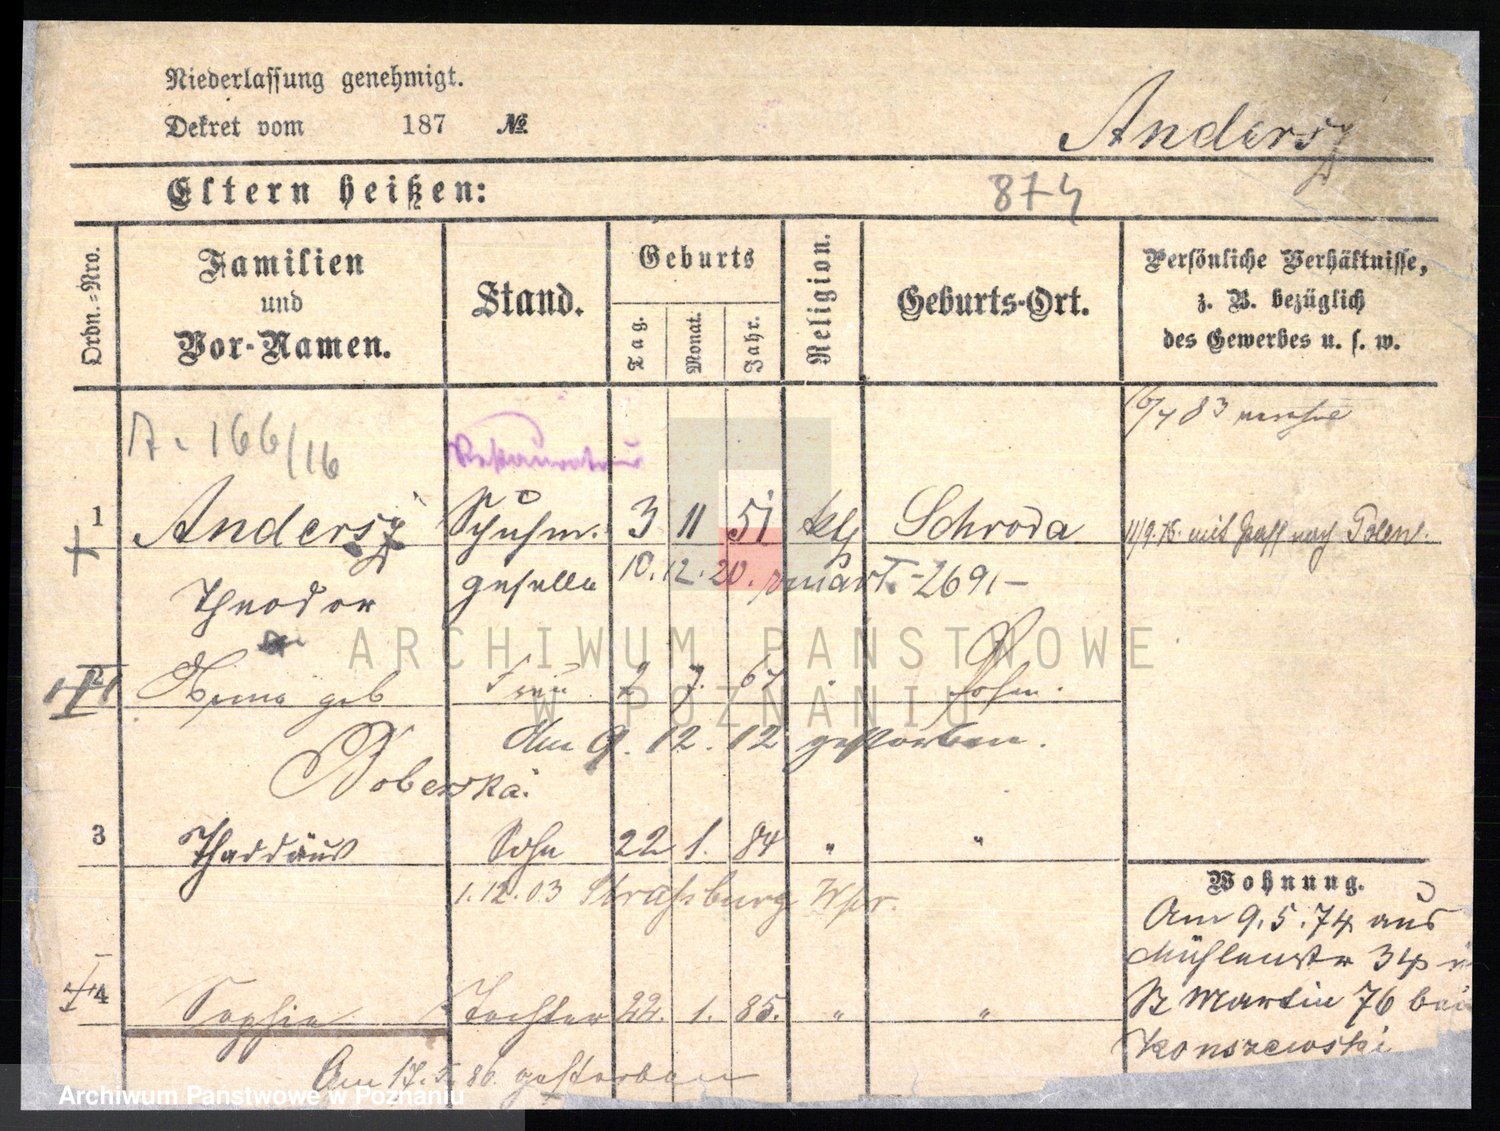 Niederlassung genehmigt.
Dekret vom 187 №
Andersz
Eltern heißen:
874
Ordn.=Nro.
Familien
und
Vor-Namen.
Stand.
Geburts
Tag.
Monat.
Jahr.
Religion.
Geburts-Ort.
Persönliche Verhältnisse,
z. B. bezüglich
des Gewerbes u. s. w.
16/7 83
A. 166/16
Restaurateur
1 Andersz Schuhm. 3 11 51 kth Schroda 11/9.75. mit Paß nach Polen.
Theodor geselle 10.12.20. -2691-
2 geb Frau 2 7. 67 " Posen.
Am 9. 12. 12 gestorben.
Boberska.
3 Thaddäus Sohn 22 1. 84 " "
1.12.03 Straßburg Wpr.
4 Sophie Tochter 22. 1. 85. " "
Am 17. 5. 86. gestorben
Wohnung.
Am 9.5.74 aus
Mühlenstr 34 n
St Martin 76 bei
Konszewski
ARCHIWUM PAŃSTWOWE
W POZNANIU
Archiwum Państwowe w Poznaniu